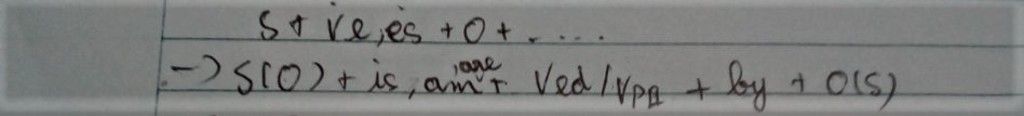 S + Ve,es + O + .....
-> S(O) + is, am, are + Ved/VPII + by + O(S)